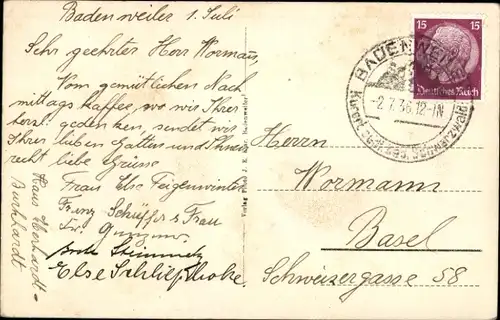 Badenweiler 1. Juli
Sehr geehrter Herr Wormann,
Vom gemütlichen Nach
mittagskaffee, wo wir Ihrer
herzl. gedenken, sendet wir
Ihrer lieben Gattin und Ihnen
recht liebe Grüsse
Frau Else Feigenwinter
Franz & Frau
Else
Hans Eberhardt-
Burkhardt
15 15
Deutsches Reich
BADENWEILER
-2.7.36.12-1N
Herrn
Wormann
Basel
Schweizergasse 58